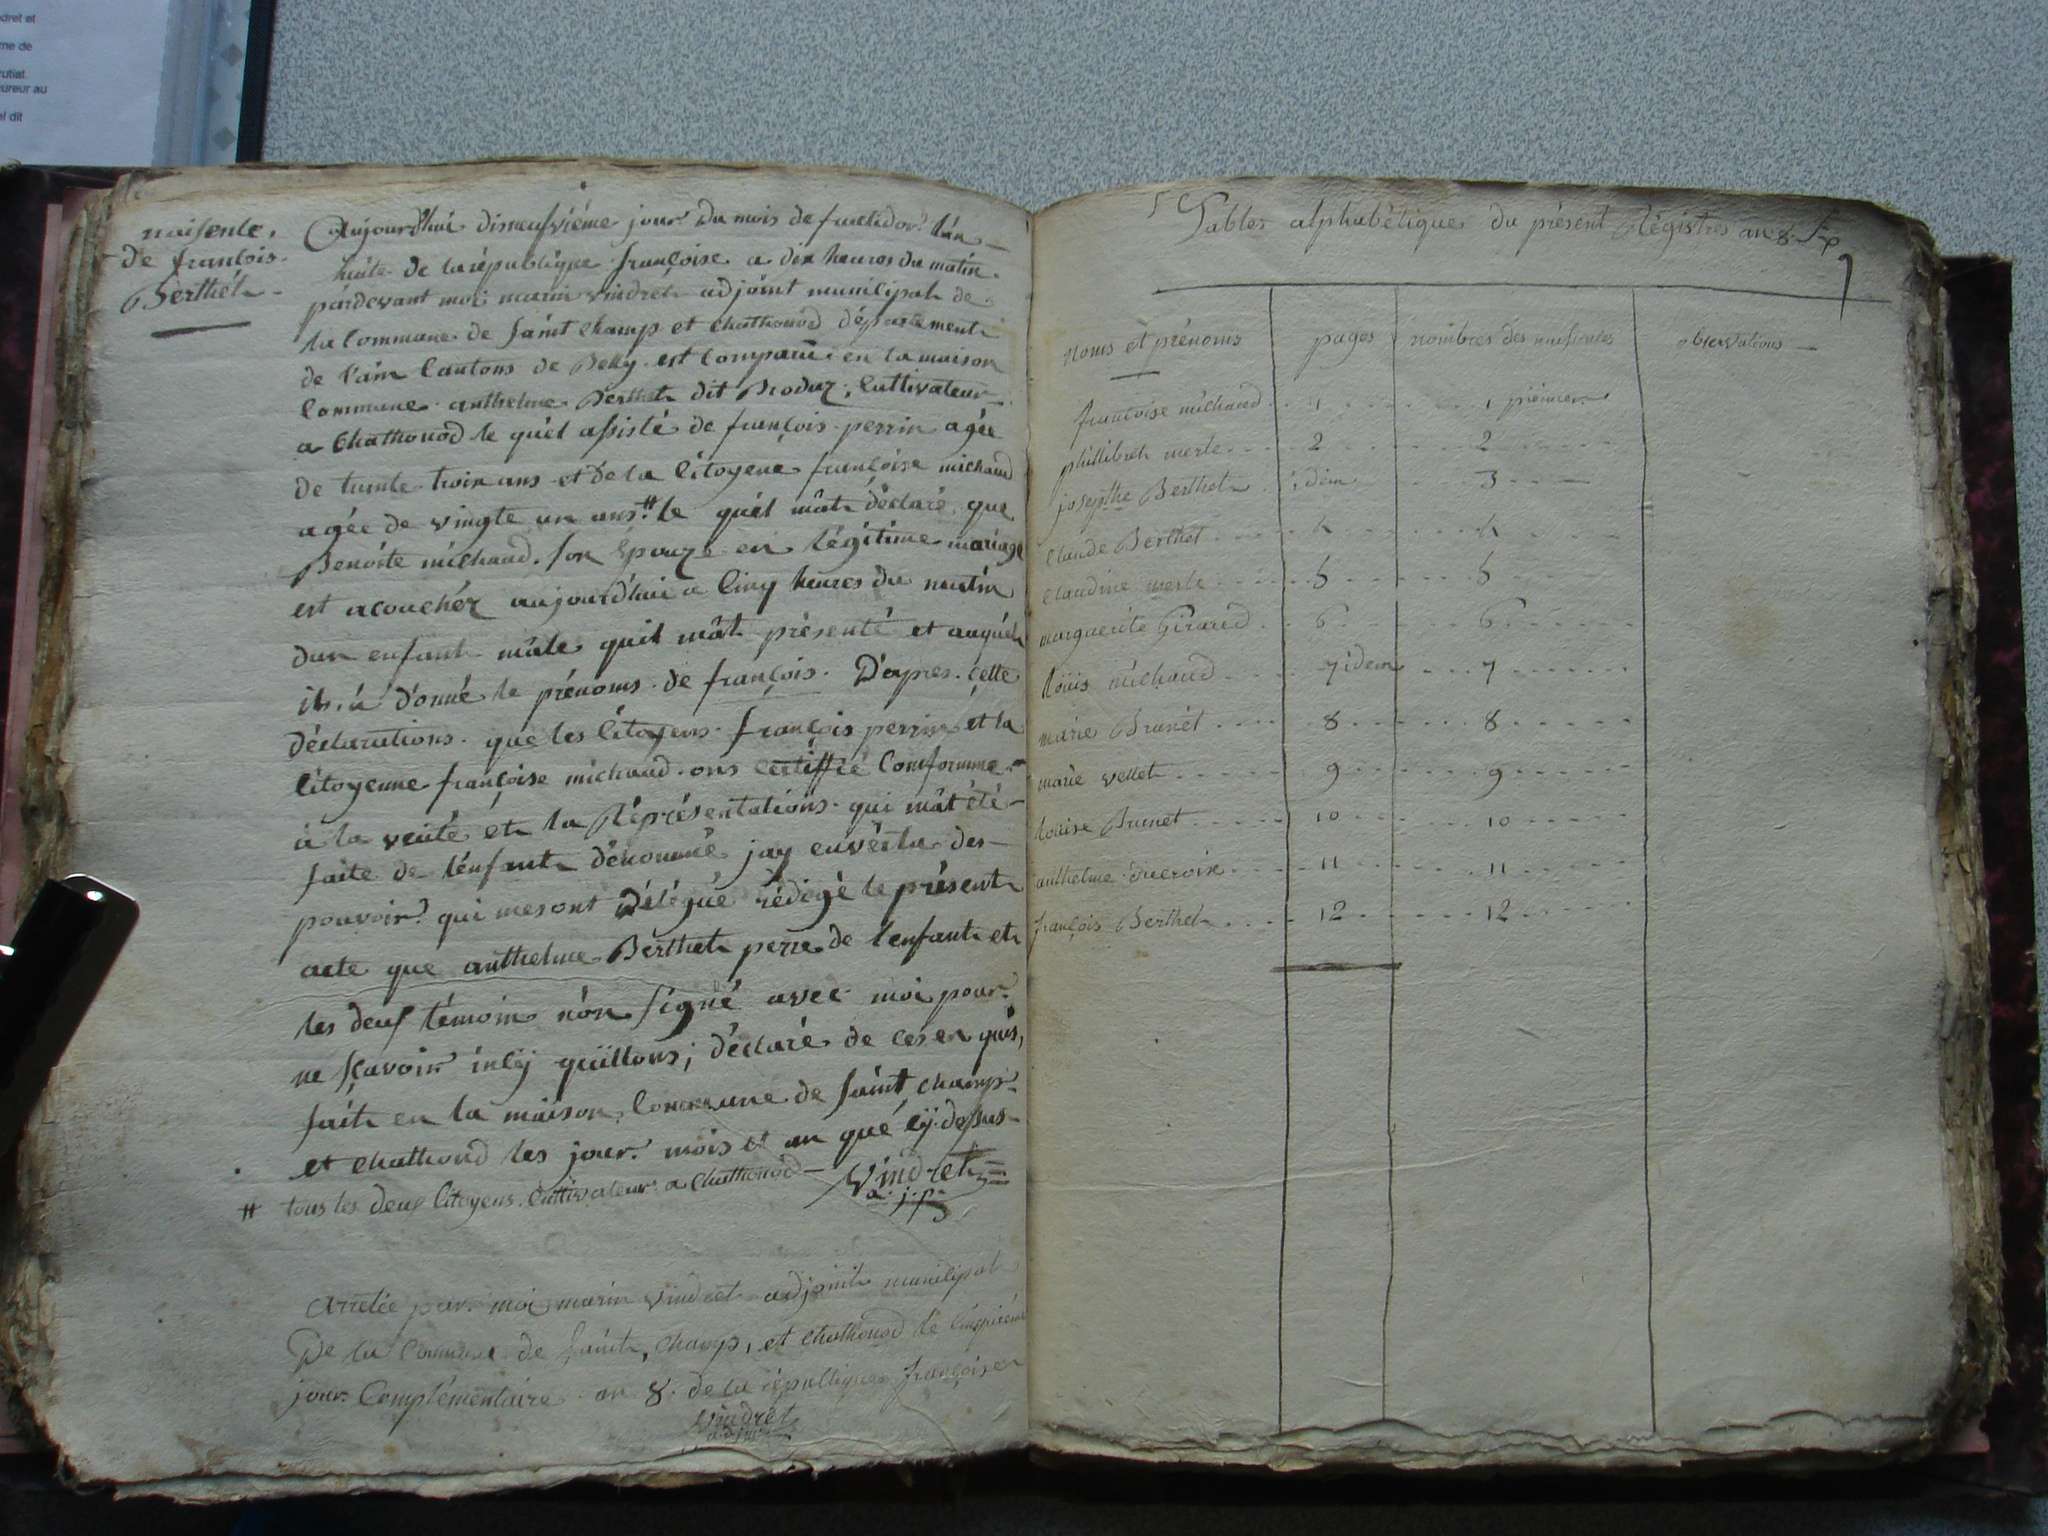 dret et
me de
rutiat.
cureur au
el dit
naisence.
de francois.
Berthet
Aujourd'hui disneufvième jour du mois de fructidor lan
huite de la république françoise a dix heures du matin.
pardevant moi marin vindret adjoint municipal de
la Commune de saint champ et chathonod département
de l'ain Cantons de Belley est Comparu en la maison
Commune anthelme Berthet dit Broduz, Cultivateur
a Chathonod le quél assisté de françois perrin agée
de trente troix ans et de la Citoyene françoise michaud
agée de vingte un ans # le quél mât déclaré que
Benoite michaud son Epouze en légitime mariage
est acouchéz aujourd'hui a Cinq heures du matin
dun enfant mâle quil mât présenté et auquél
il à donné le prénoms de françois. D'apres cette
déclarations que les Citoyens françois perrin et la
Citoyenne françoise michaud ons certiffié Comformme
à la verité et la Répréséntations qui mât été
faite de lénfant dénommé jay envértu des
pouvoir qui mesont Délégué rédigé le présent
acte que anthelme Berthet perre de lenfant et
les deux témoin nón signé avec moi pour
ne sçavoir incÿ quïllons, déclaré de ces en quis,
fait en la maison Commune de saint champ
et chathonod les jour mois et an qué cÿ dessus
# tous les deux Citoyens Cultivateur a Chathonod Vindret
a. j. p.
Arretée par moi marin Vindret adjoint municipal
De la Commune de saint champ, et chathonod le
jour Complémentaire an 8. de la république françoise
Vindret
Tables alphabétiques du présent Régistres an 8.
noms et prénoms pages nombres des naisences observations
francoise michaud 1 1 premier
phillibert merle 2 2
josephe Berthet idem 3
Claude Berthet 4 4
Claudine merle 5 5
marguerite Girard 6 6
Loüis michaud 7 idem 7
marie Brunet 8 8
marie vellet 9 9
Louise Brunet 10 10
anthelme ducroix 11 11
françois Berthet 12 12